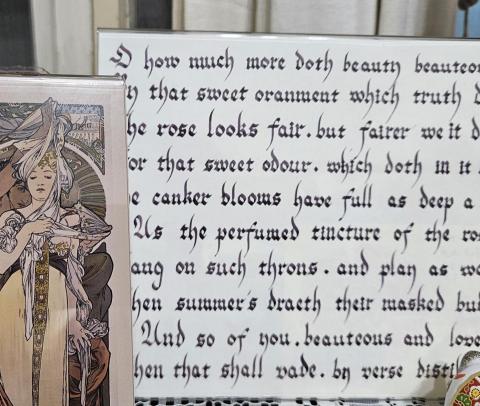 O how much more doth beauty beauteou
that sweet oranment which truth
he rose looks fair. but fairer we it d
or that sweet odour. which doth in it
e canker blooms have full as deep a
As the perfumed tincture of the ro
ang on such throns. and play as wa
hen summer's draeth their masked bu
And so of you. beauteous and love
hen that shall vade. by verse distil